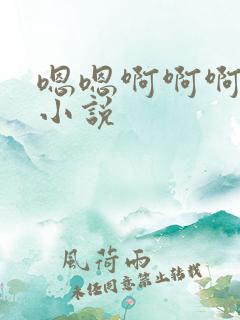 嗯嗯啊啊啊
小説
風荷雨
未经同意禁止转载